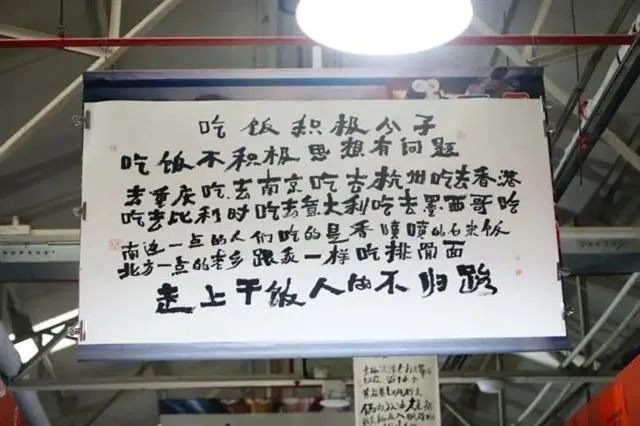 吃饭积极分子
吃饭不积极思想有问题
去重庆吃去南京吃去杭州吃去香港
吃去比利时吃去意大利吃去墨西哥吃
南边一点的人们吃的是香喷喷的白米饭
北方一点的老乡跟我一样吃排骨面
走上干饭人的不归路